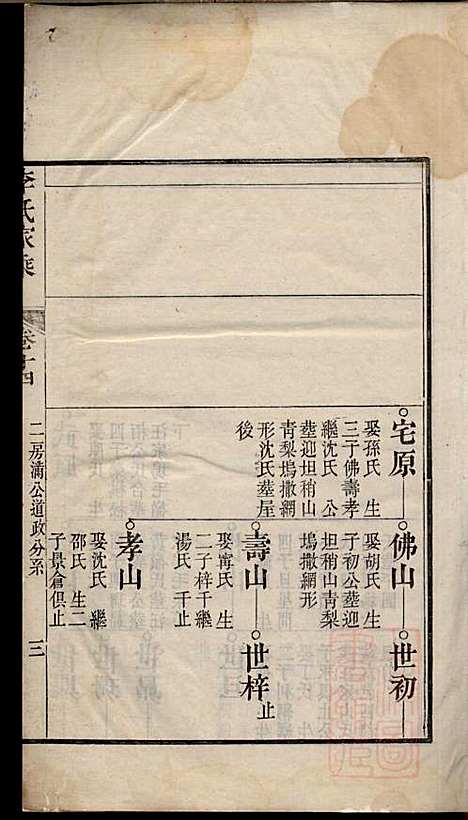 宅原
娶孫氏 生
三子佛壽孝
繼沈氏 公
塟迎坦稍山
青梨塢撒網
形沈氏塟屋
後
佛山
娶胡氏 生
子初公塟迎
坦稍山青梨
塢撒網形
世初
壽山
娶甯氏 生
二子梓千繼
湯氏 千止
世梓
止
孝山
娶沈氏 繼
邵氏 生二
子景倉俱止
李氏家乘
卷十四
二房浦公道政分系
三